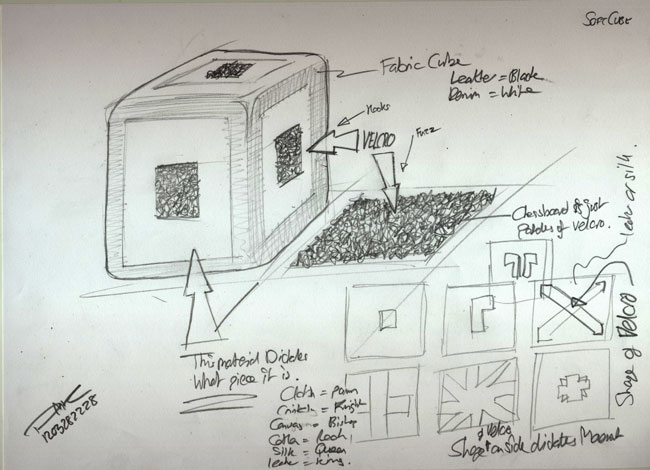 SOFT CUBE
Fabric Cube
Leather = Black
Denim = White
Hooks
VELCRO
Fuzz
Chessboard of just
patches of velcro.
leather or silk.
Shape of Velcro
This material Dictates
What piece it is.
Cloth = Pawn
= Knight
Canvas = Bishop
Cotton = Rook
Silk = Queen
leather = King.
& Velcro
Shape on side dictates
1203282228